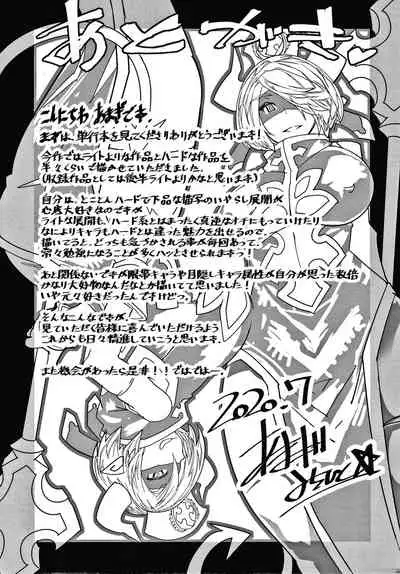 あとがき
こんにちわ あまぎです。
まずは、単行本を見てくださりありがとうございます!
今作ではライトよりな作品とハードな作品を
半々くらいで描かせていただきました。
(収録作品としては後半ライトよりかなと思います)
自分は、とことんハードで下品な描写のいやらしい展開が
心底大好きなのですが
ライトな展開も、ハード系とはまったく真逆なオチにもっていけたり
なによりキャラもハードとは違った魅力を出せるので、
描いてると、どっちも気づかされる事が毎回あって、
常々勉強になることが多くハッとさせられます!
あと関係ないですが眼帯キャラや目隠しキャラ属性が自分が思った数倍
かなり大好物なんだなとか描いてて思いました!
いや元々好きだったんですけどっ。
そんなこんなですが、
「見ていただく皆様に喜んでいただけるよう
これからも日々精進していこうと思います。
また機会があったら是非!!ではではー。
2020.7